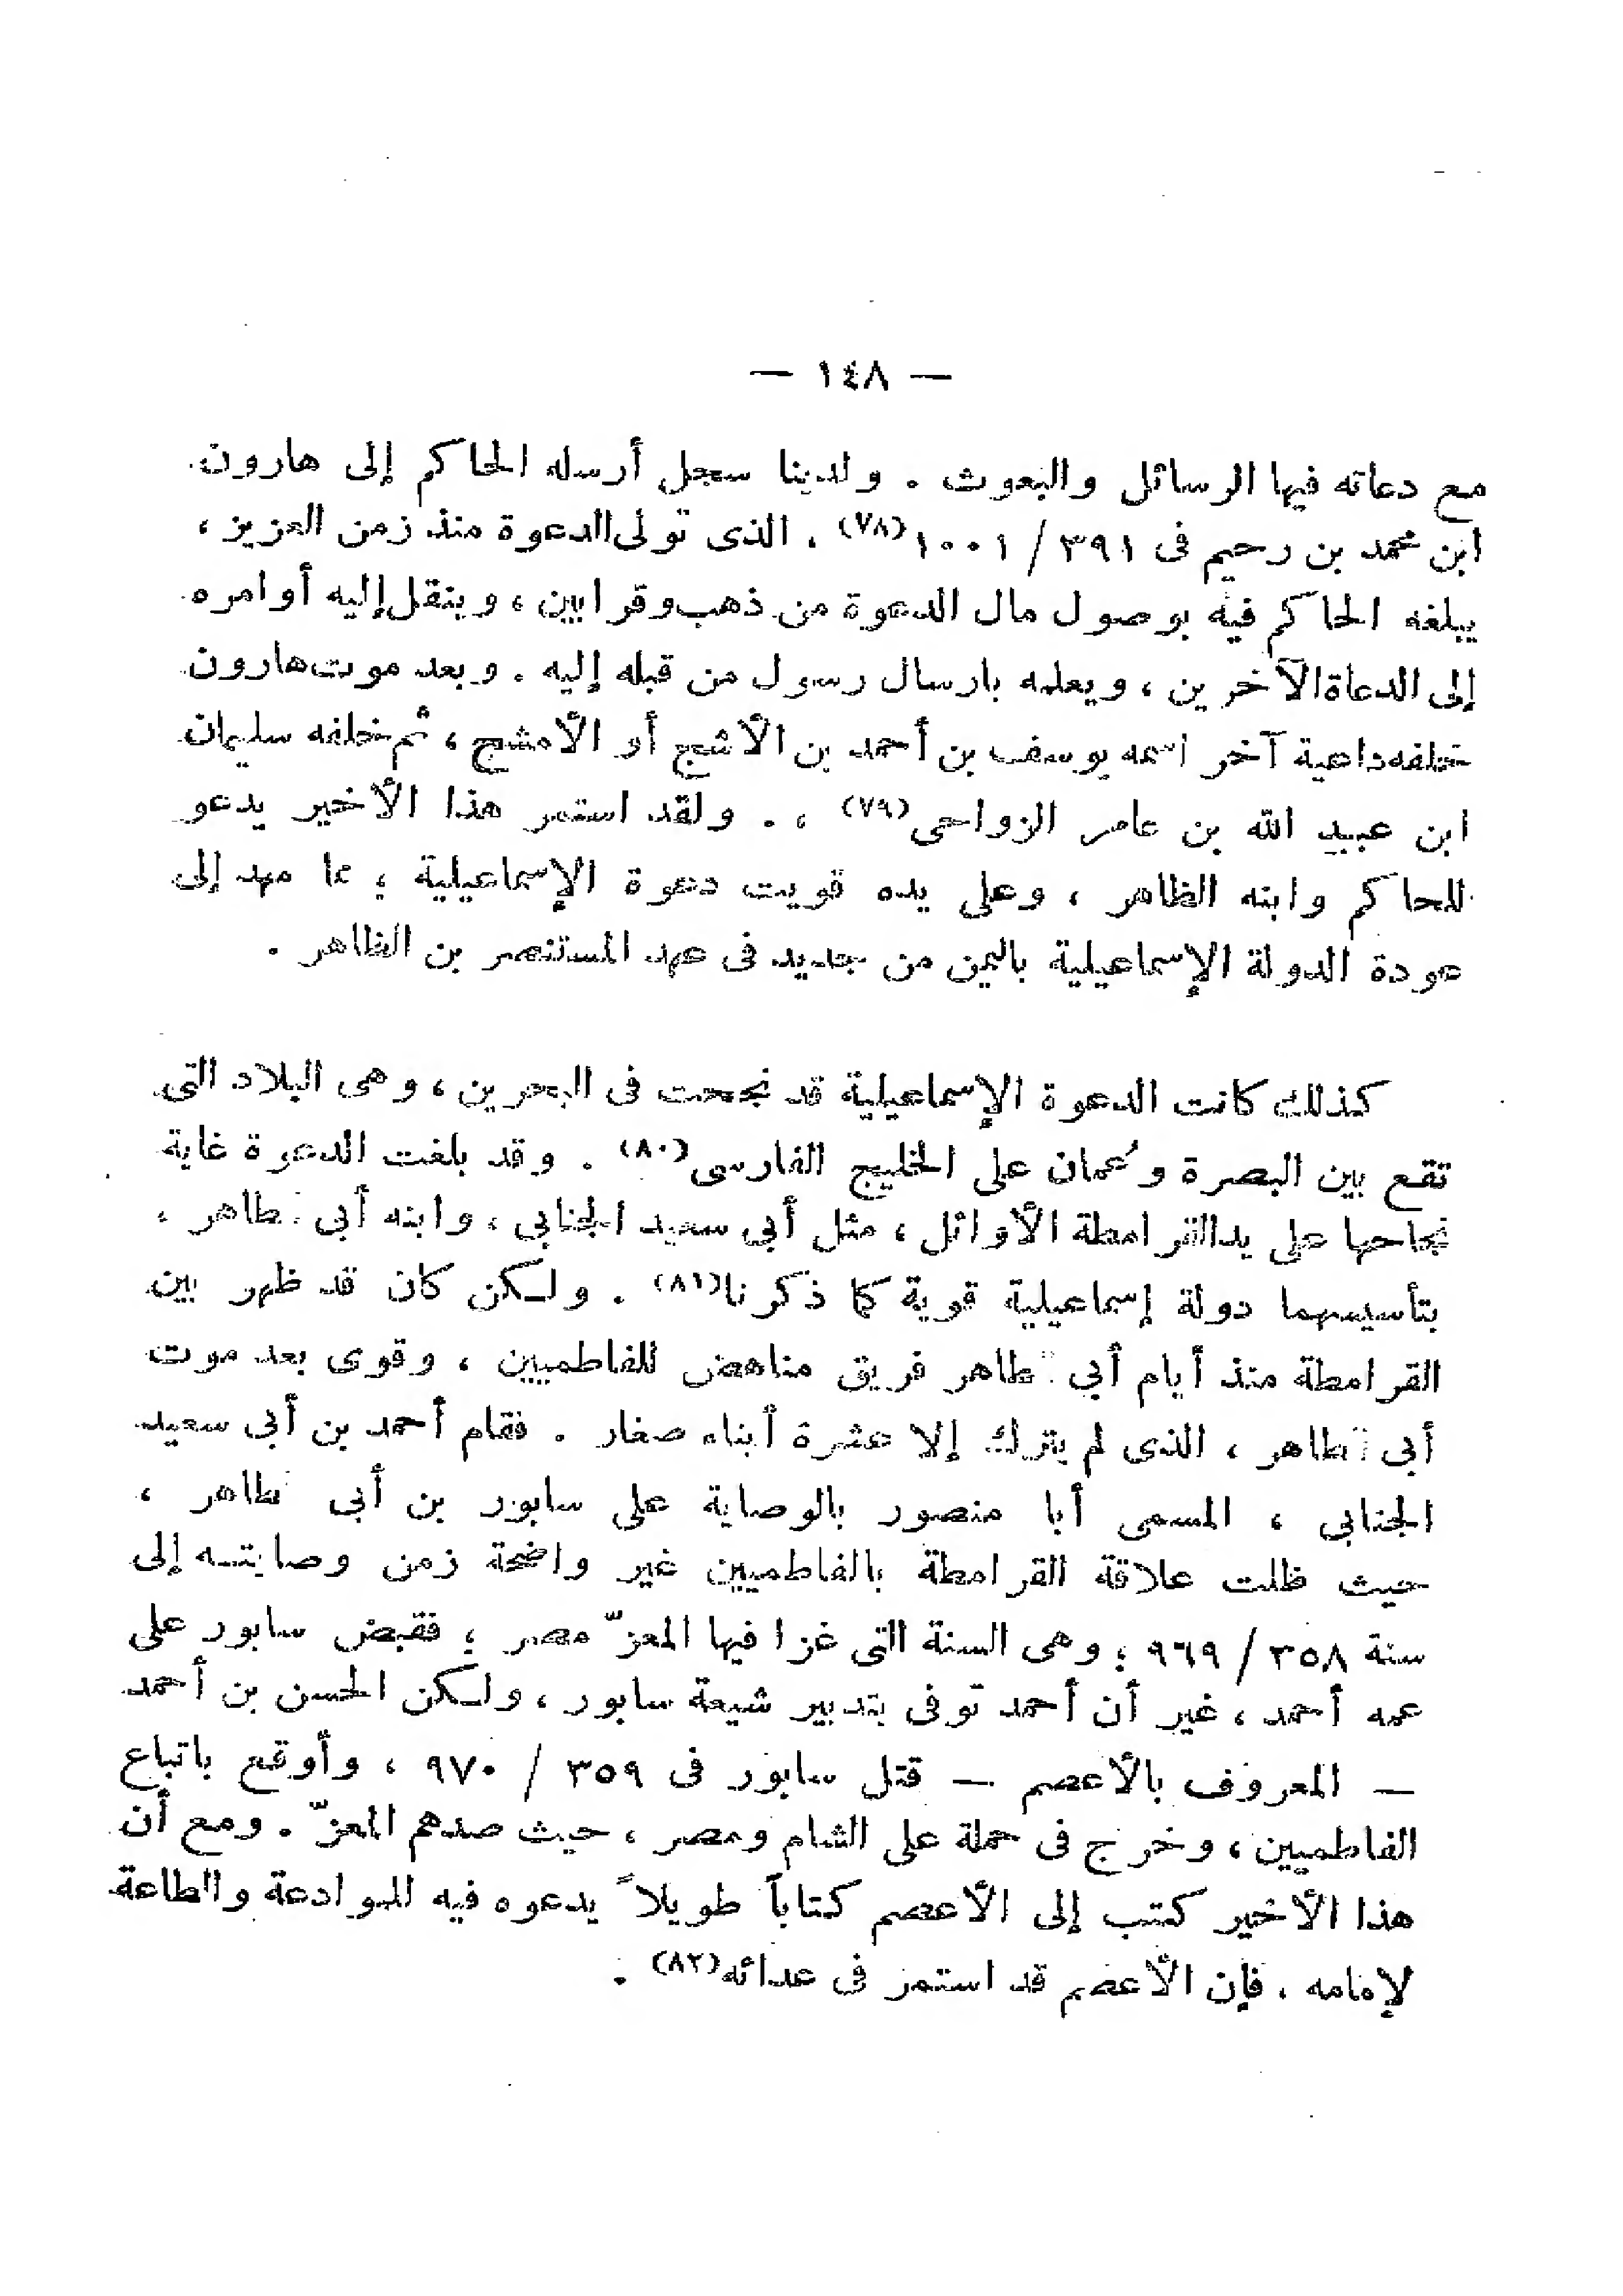 — ١٤٨ —
مع دعاته فيها الرسائل والبعوث . ولدينا سجل أرسله الحاكم إلى هارون
ابن محمد بن رحيم فى ٣٩١ / ١٠٠١ (٧٨) . الذى تولى الدعوة منذ زمن العزيز ،
يبلغه الحاكم فيه بوصول مال الدعوة من ذهب وقرابين ، وينقل إليه أوامره
إلى الدعاة الآخرين ، ويعلمه بارسال رسول من قبله إليه . وبعد موت هارون
خلفه داعية آخر اسمه يوسف بن أحمد بن الأشج أو الأمشج ، ثم خلفه سليمان
ابن عبيد الله بن عامر الزواحى (٧٩) ، . ولقد استمر هذا الأخير يدعو
للحاكم وابنه الظاهر ، وعلى يده قويت دعوة الإسماعيلية ؛ مما مهد إلى
عودة الدولة الإسماعيلية باليمن من جديد فى عهد المستنصر بن الظاهر .
كذلك كانت الدعوة الإسماعيلية قد نجحت فى البحرين ، وهى البلاد التى
تقع بين البصرة وعُمان على الخليج الفارسى (٨٠) . وقد بلغت الدعوة غاية
نجاحها على يد القرامطة الأوائل ، مثل أبي سعيد الجنابي ، وابنه أبي طاهر ،
بتأسيسهما دولة إسماعيلية قوية كما ذكرنا (٨١) . ولكن كان قد ظهر بين
القرامطة منذ أيام أبي طاهر فريق مناهض للفاطميين ، وقوى بعد موت
أبى طاهر ، الذى لم يترك إلا عشرة أبناء صغار . فقام أحمد بن أبى سعيد
الجنابي ، المسمى أبا منصور بالوصاية على سابور بن أبى طاهر ،
حيث ظلت علاقة القرامطة بالفاطميين غير واضحة زمن وصايته إلى
سنة ٣٥٨ / ٩٦٩ ؛ وهى السنة التى غزا فيها المعزّ مصر ؛ فقبض سابور على
عمه أحمد ، غير أن أحمد توفى بتدبير شيعة سابور ، ولكن الحسن بن أحمد
— المعروف بالأعصم — قتل سابور فى ٣٥٩ / ٩٧٠ ، وأوقع باتباع
الفاطميين ، وخرج فى حملة على الشام ومصر ، حيث صدهم المعزّ . ومع أن
هذا الأخير كتب إلى الأعصم كتاباً طويلاً يدعوه فيه للموادعة والطاعة
لإمامه ، فإن الأعصم قد استمر فى عدائه (٨٢) .